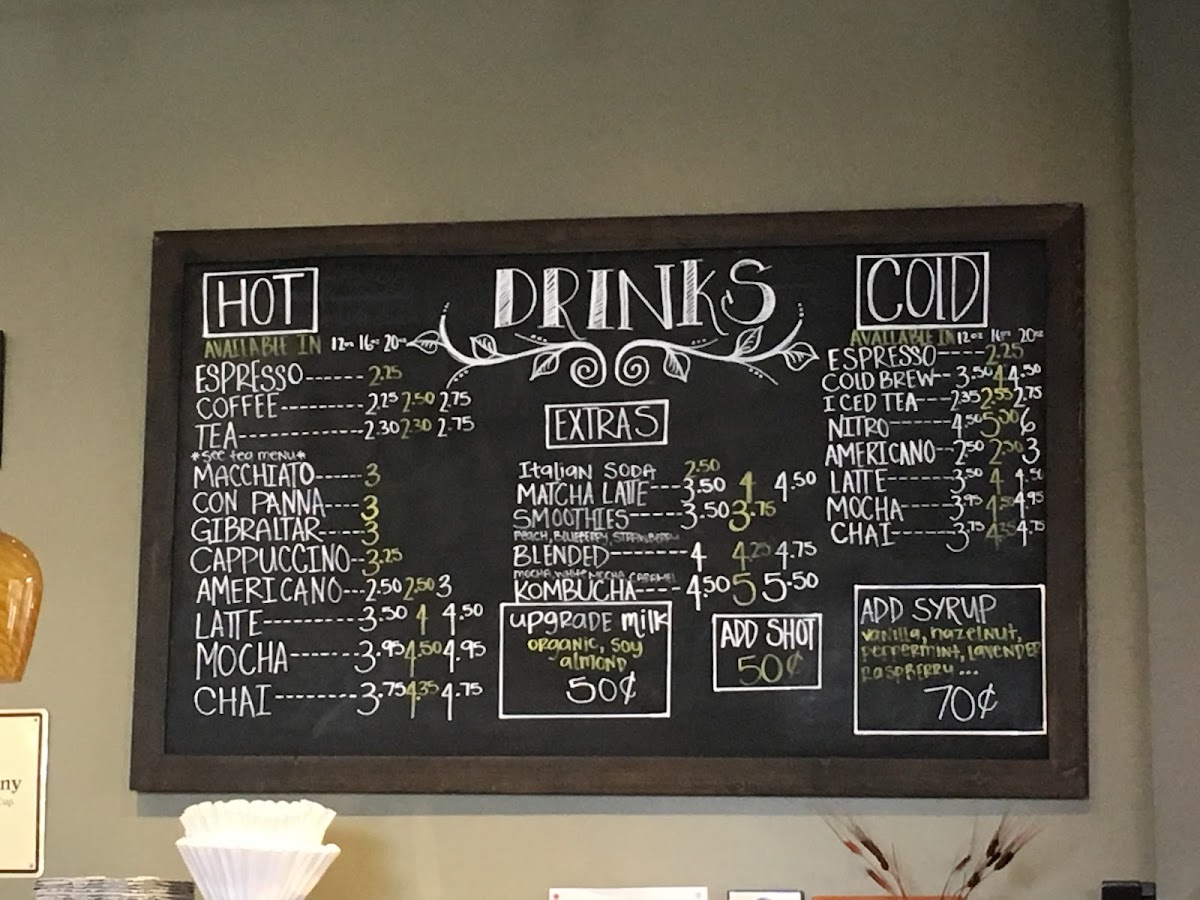 DRINKS
HOT
AVAILABLE IN 12oz 16oz 20oz
ESPRESSO------2.25
COFFEE---------2.25 2.50 2.75
TEA-------------2.30 2.30 2.75
*see tea menu*
MACCHIATO-----3
CON PANNA----3
GIBRALTAR----3
CAPPUCCINO--3.25
AMERICANO---2.50 2.50 3
LATTE----------3.50 4 4.50
MOCHA--------3.95 4.50 4.95
CHAI---------3.75 4.35 4.75
EXTRAS
Italian SODA 2.50
MATCHA LATTE---3.50 4 4.50
SMOOTHIES-----3.50 3.75
PEACH, BLUEBERRY, STRAWBERRY
BLENDED--------4 4.25 4.75
MOCHA, WHITE MOCHA, CARAMEL
KOMBUCHA-----4.50 5 5.50
upgrade milk
organic, soy
almond
50¢
ADD SHOT
50¢
COLD
AVAILABLE IN 12oz 16oz 20oz
ESPRESSO-----2.25
COLD BREW--3.50 4 4.50
ICED TEA----2.35 2.55 2.75
NITRO-------4.50 5.00 6
AMERICANO--2.50 2.50 3
LATTE-------3.50 4 4.50
MOCHA-----3.95 4.50 4.95
CHAI------3.75 4.35 4.75
ADD SYRUP
vanilla, hazelnut,
peppermint, lavender
raspberry...
70¢
ny